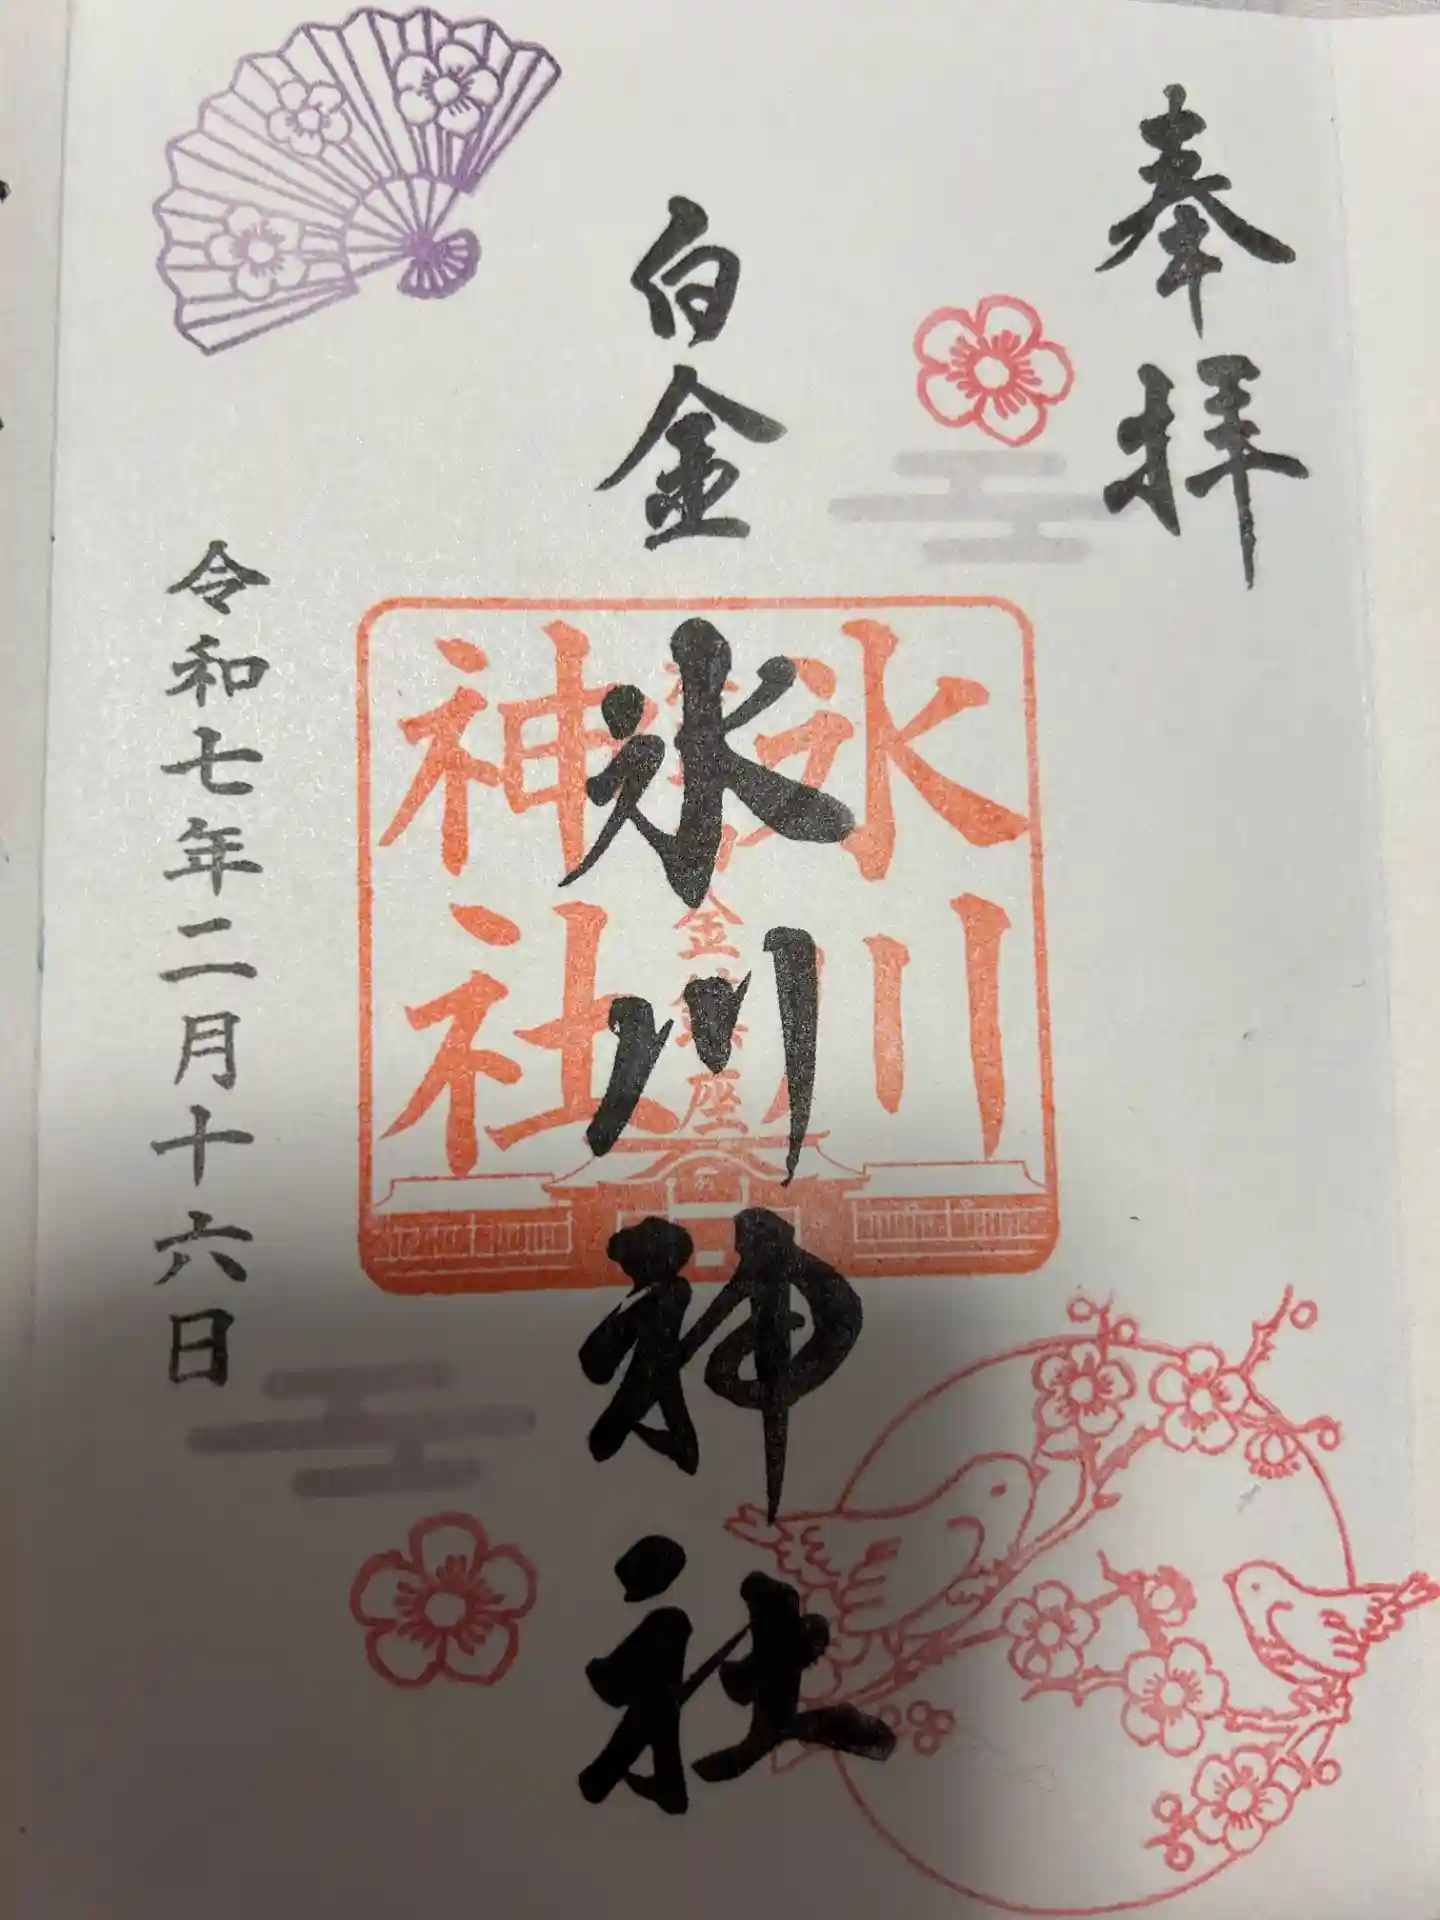 奉拝
白金
氷川神社
氷川
金鎮座
神社
令和七年二月十六日